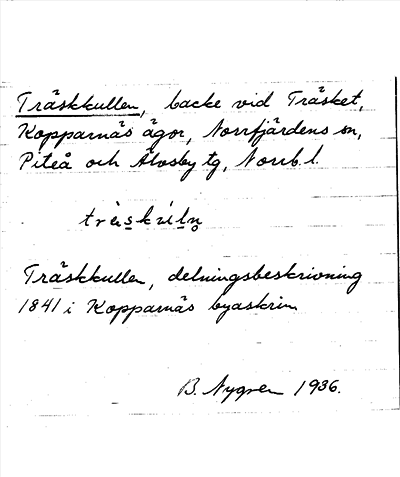 Träskkullen, backe vid Träsket,
Kopparnäs ägor, Norrfjärdens sn,
Piteå och Älvsby tg, Norrb. l.
Träskkullen, delningsbeskrivning
1841 i Kopparnäs byaskrin
B. Nygren 1936.